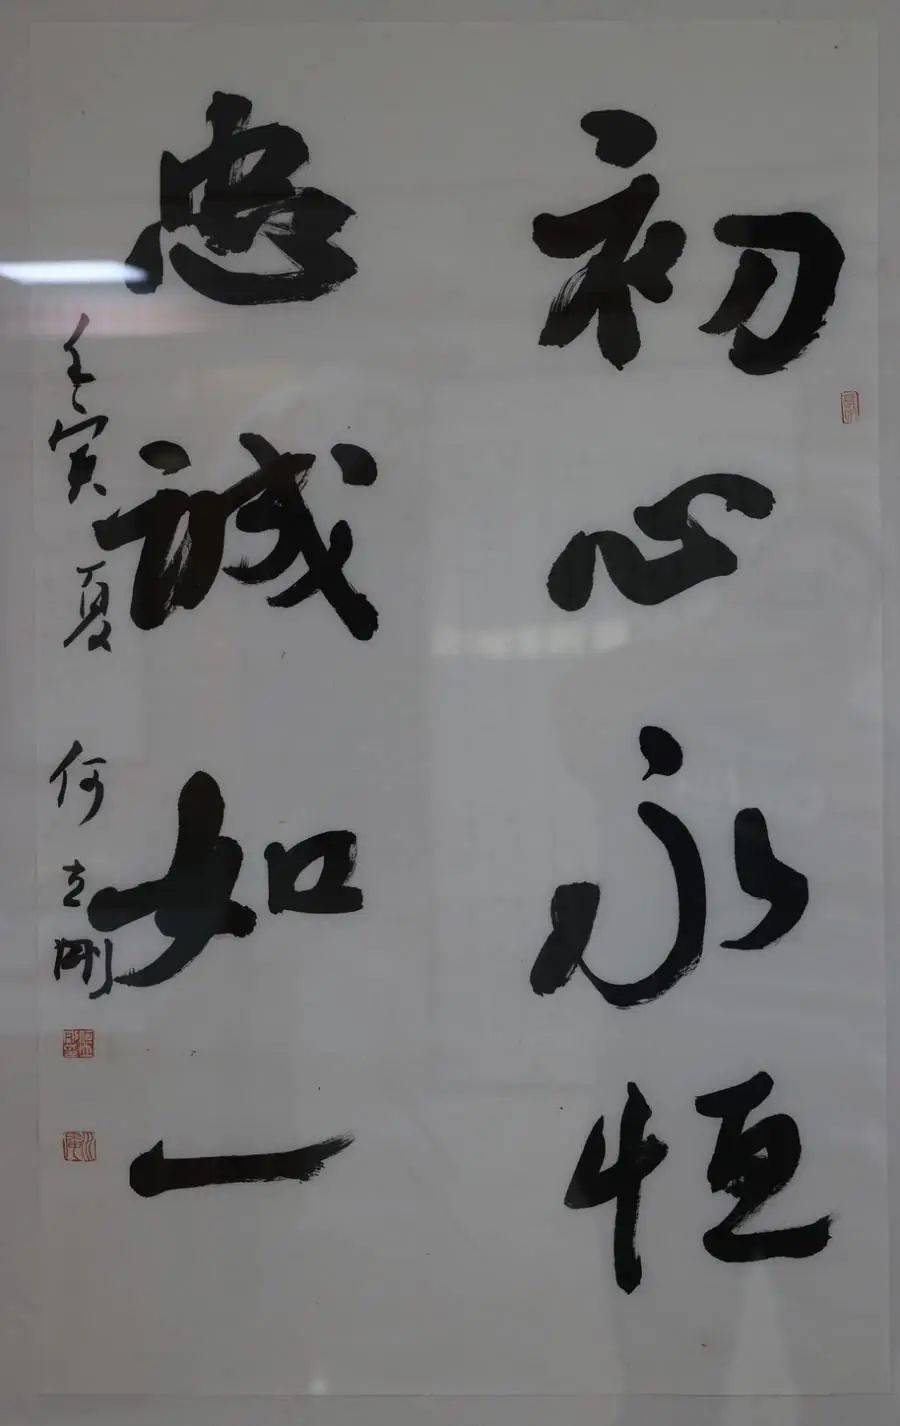 初心永恒
忠誠如一
壬寅夏 何立刚